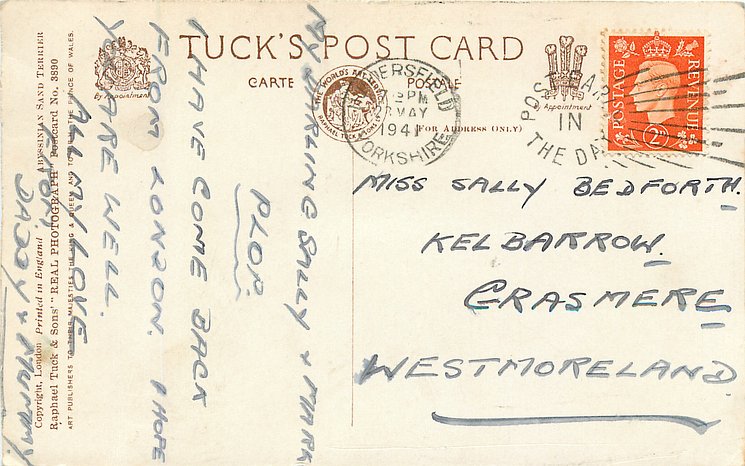 TUCK'S POST CARD
CARTE POSTALE
By Appointment
By Appointment
THE WORLD'S ART SERVICE
RAPHAEL TUCK & SONS LTD
(FOR ADDRESS ONLY)
HUDDERSFIELD
YORKSHIRE
MAY
1941
POST EARLY
IN
THE DAY
POSTAGE
REVENUE
2D
MISS SALLY BEDFORTH.
KELBARROW.
GRASMERE
WESTMORELAND
MY DARLING SALLY & MARK
PLOP.
I HAVE COME BACK
FROM LONDON. I HOPE
YOU ARE WELL.
ALL MY LOVE
FROM
DADDY & Mummy
Copyright, London Printed in England ABYSSINIAN SAND TERRIER
Raphael Tuck & Sons' "REAL PHOTOGRAPH" Postcard No. 3890
ART PUBLISHERS TO THEIR MAJESTIES THE KING & QUEEN AND TO THE PRINCE OF WALES.